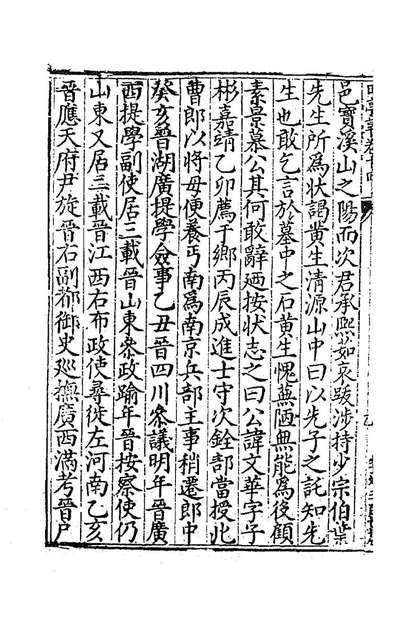 邑寶溪山之陽而次君承熙茹哀跋涉持少宗伯葉
先生所為狀謁黃生清源山中曰以先子之託知先
生也敢乞言於墓中之石黃生愧蕪陋無能為後顧
素景慕公其何敢辭廼按狀志之曰公諱文華字子
彬嘉靖乙卯薦于鄉丙辰成進士守次銓部當授北
曹郎以將母便養丐南為南京兵部主事稍遷郎中
癸亥晉湖廣提學僉事乙丑晉四川叅議明年晉廣
西提學副使居三載晉山東叅政踰年晉按察使仍
山東又居三載晉江西右布政使尋徙左河南乙亥
晉應天府尹旋晉右副都御史巡撫廣西滿考晉戶